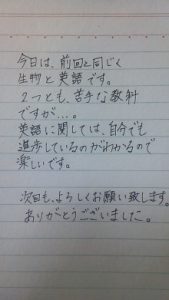 今日は、前回と同じく
生物と英語です。
2つとも、苦手な教科
ですが…。
英語に関しては、自分でも
進歩しているのがわかるので
楽しいです。
次回も、よろしくお願い致します。
ありがとうございました。